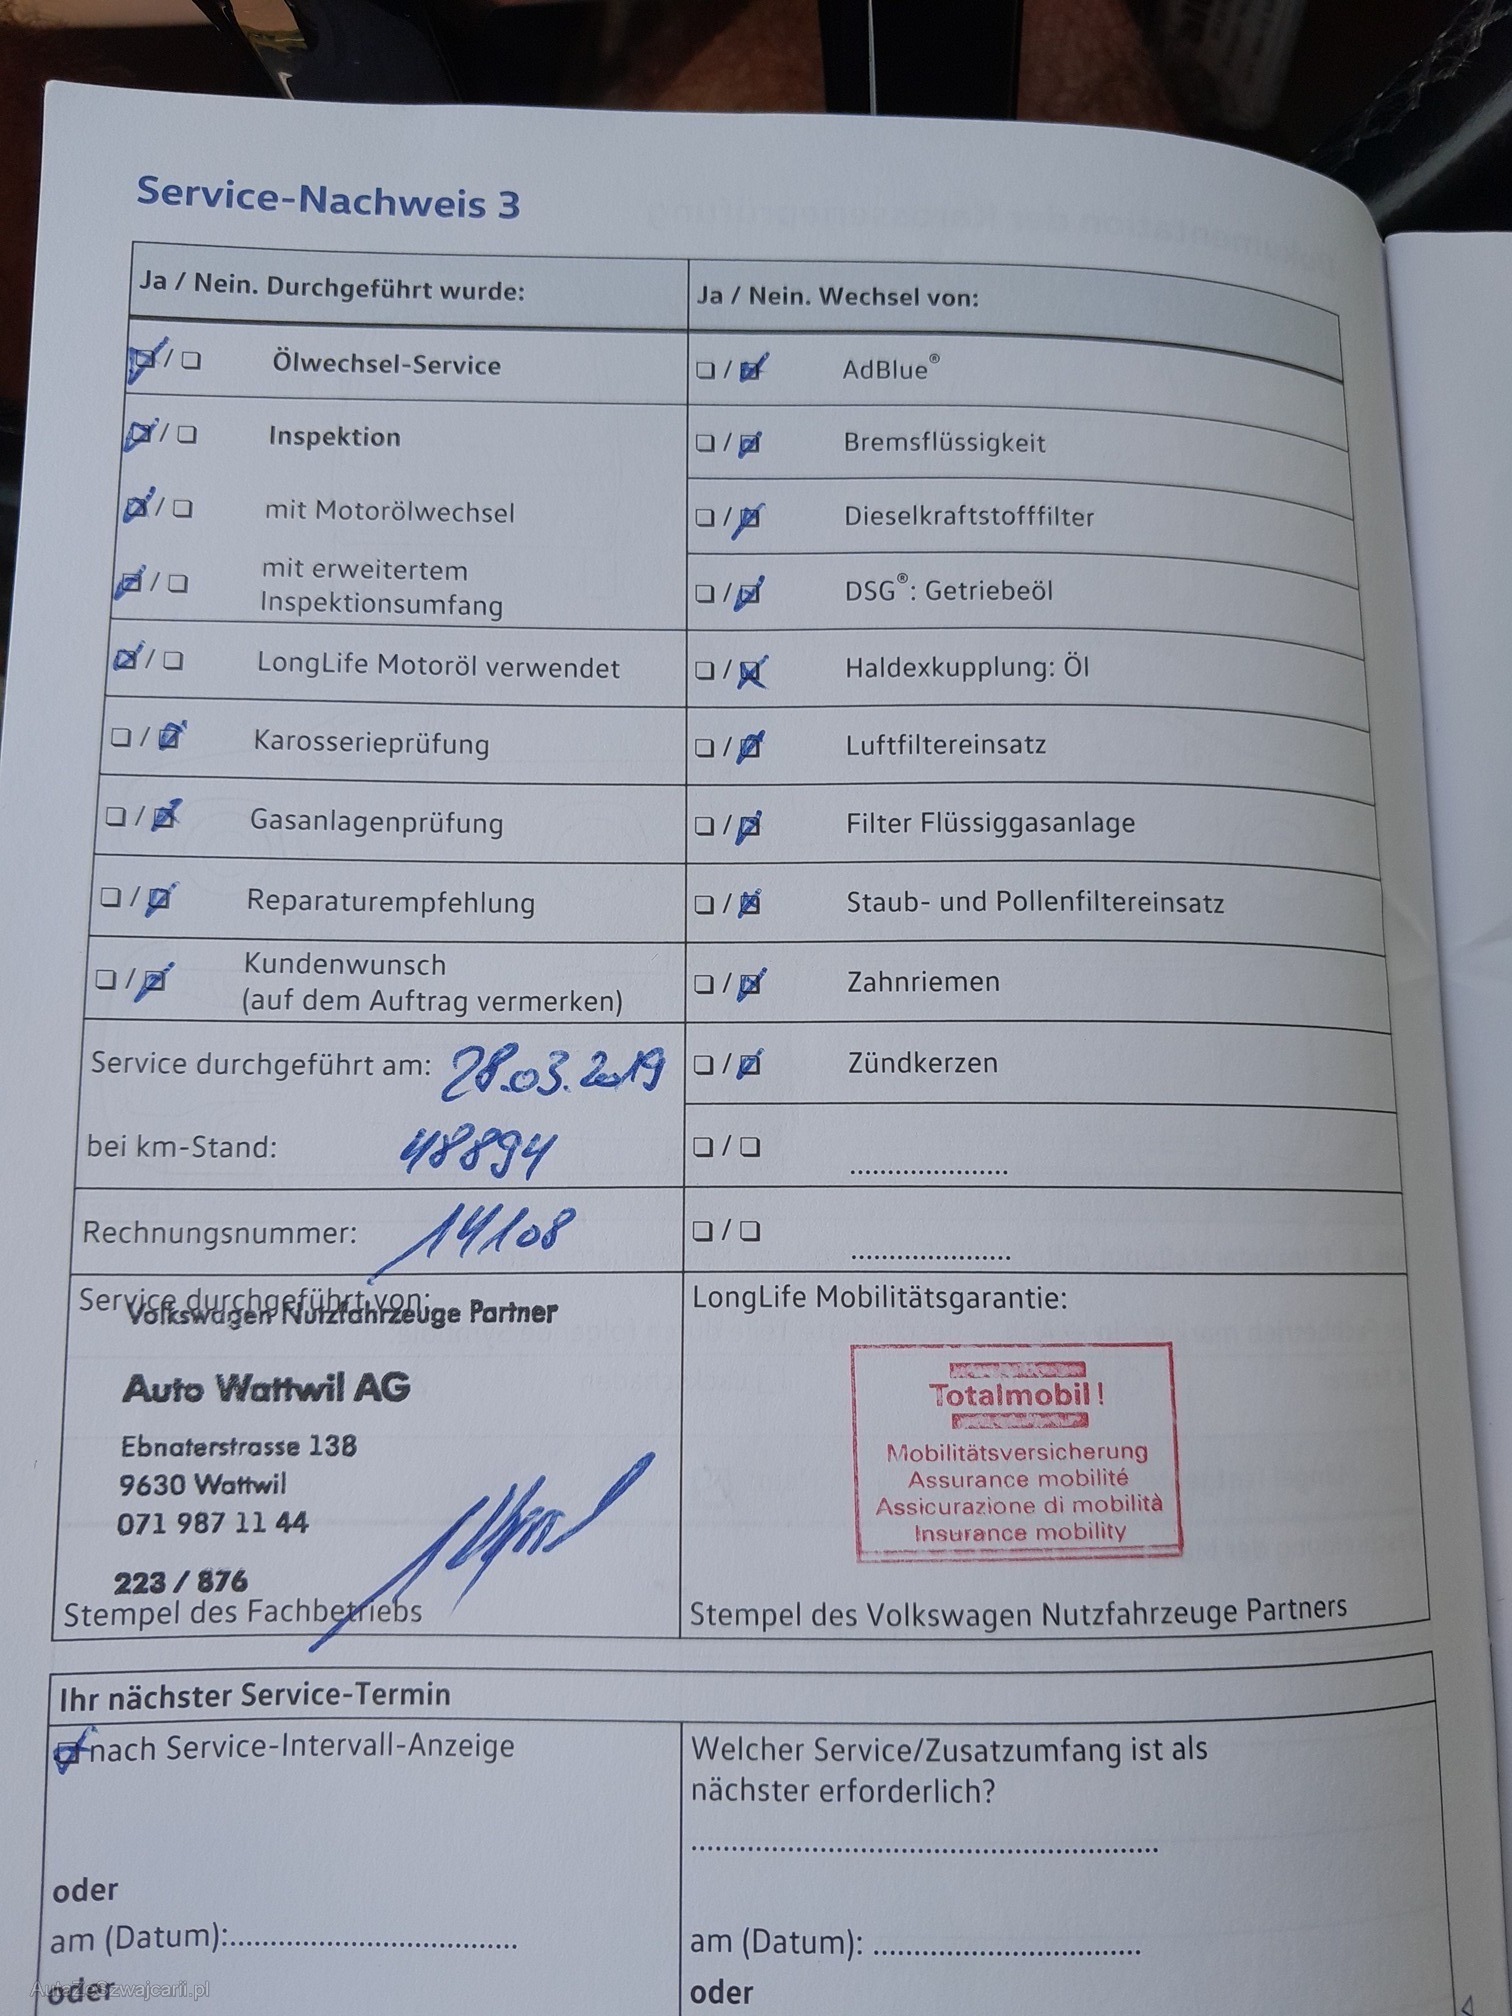 Service-Nachweis 3
Ja / Nein. Durchgeführt wurde:
☑ / ☐ Ölwechsel-Service
☑ / ☐ Inspektion
☑ / ☐ mit Motorölwechsel
☑ / ☐ mit erweitertem
Inspektionsumfang
☑ / ☐ LongLife Motoröl verwendet
☐ / ☑ Karosserieprüfung
☐ / ☑ Gasanlagenprüfung
☐ / ☑ Reparaturempfehlung
☐ / ☑ Kundenwunsch
(auf dem Auftrag vermerken)
Service durchgeführt am: 28.03.2019
bei km-Stand: 48894
Rechnungsnummer: 14108
Ja / Nein. Wechsel von:
☐ / ☑ AdBlue®
☐ / ☑ Bremsflüssigkeit
☐ / ☑ Dieselkraftstofffilter
☐ / ☑ DSG®: Getriebeöl
☐ / ☑ Haldexkupplung: Öl
☐ / ☑ Luftfiltereinsatz
☐ / ☑ Filter Flüssiggasanlage
☐ / ☑ Staub- und Pollenfiltereinsatz
☐ / ☑ Zahnriemen
☐ / ☑ Zündkerzen
☐ / ☐ ....................
☐ / ☐ ....................
Service durchgeführt von:
Volkswagen Nutzfahrzeuge Partner
Auto Wattwil AG
Ebnaterstrasse 138
9630 Wattwil
071 987 11 44
223 / 876
Stempel des Fachbetriebs
LongLife Mobilitätsgarantie:
Totalmobil!
Mobilitätsversicherung
Assurance mobilité
Assicurazione di mobilità
Insurance mobility
Stempel des Volkswagen Nutzfahrzeuge Partners
Ihr nächster Service-Termin
☑ nach Service-Intervall-Anzeige
oder
am (Datum):....................
oder
Welcher Service/Zusatzumfang ist als
nächster erforderlich?
....................
am (Datum): ....................
oder
AutaZeSzwajcarii.pl